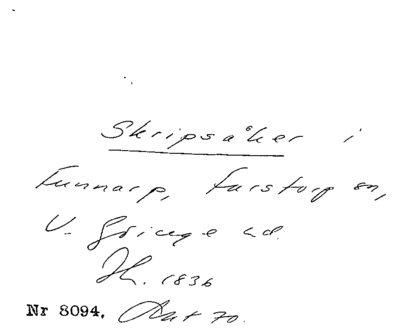 Skripsåker i
Funnarp, Farstorp sn,
V. Göinge hd.
H. 1836
Nr 8094. Aut 70.